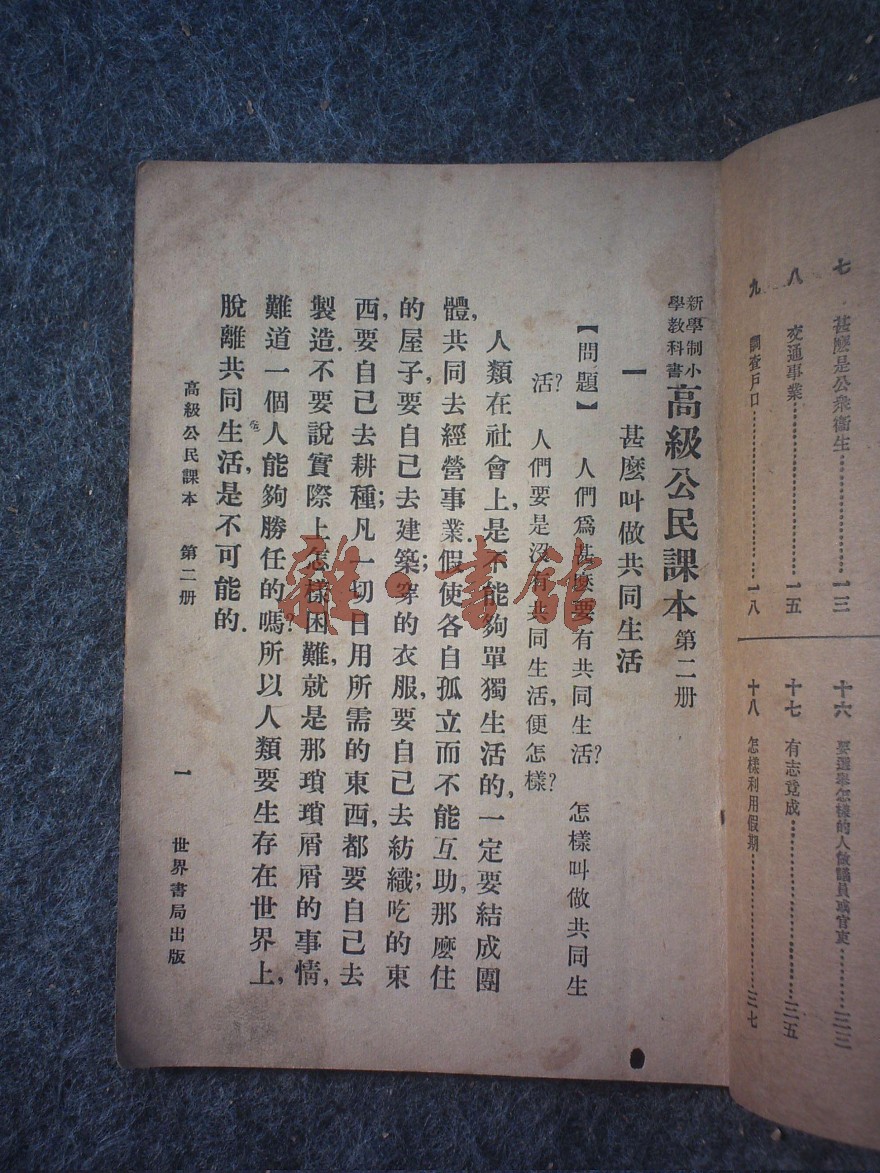 七 甚麽是公衆衞生………………一三
八 交通事業………………一五
九 調查戶口………………一八
十六 要選舉怎樣的人做議員或官吏………三三
十七 有志竟成………………三五
十八 怎樣利用假期………………三七
新學制小學教科書 高級公民課本 第二册
一 甚麽叫做共同生活
【問題】 人們爲甚麽要有共同生活? 怎樣叫做共同生
活? 人們要是沒有共同生活,便怎樣?
人類在社會上,是不能夠單獨生活的,一定要結成團
體,共同去經營事業.假使各自孤立而不能互助,那麽住
的屋子,要自己去建築;穿的衣服,要自己去紡織;吃的東
西,要自己去耕種;凡一切日用所需的東西,都要自己去
製造.不要說實際上怎樣困難,就是那瑣瑣屑屑的事情,
難道一個人能夠勝任的嗎?所以人類要生存在世界上,
脫離共同生活,是不可能的.
高級公民課本 第二册 一 世界書局出版
雜·書館